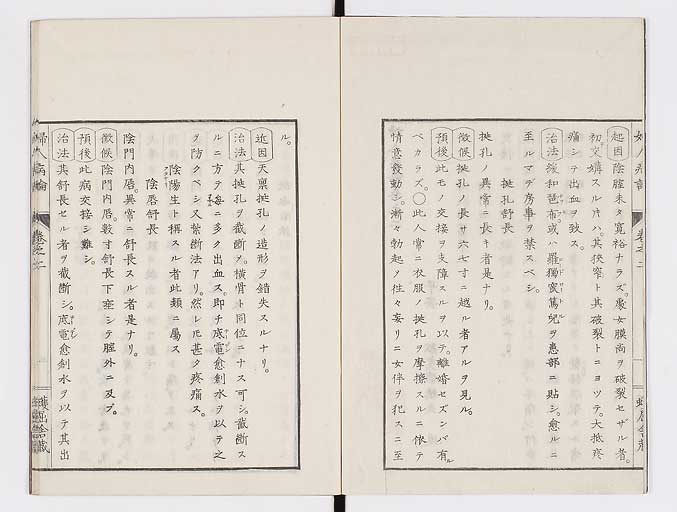 起因陰腟未タ寛裕ナラズ。處女膜尚ヲ破裂セザル者。
初交媾スル片ハ。其狹窄ト其破裂トニヨツテ。大抵疼
痛シテ出血ヲ致ス。
治法緩和芭布或ハ羅獨蜜篤兒ヲ患部ニ貼シ。愈ルニ
至ルマデ房事ヲ禁スベシ。
挺孔舒長
挺孔ノ異常ニ長キ者是ナリ。
徴候挺孔ノ長サ六七寸ニ越ル者アルヲ見ル。
預後此モノ。交接ヲ支障スルヲ以テ。離婚セズンバ有ル
ベカラズ。〇此人常ニ衣服ノ挺孔ヲ摩擦スルニ依テ
情意發動シ。漸々勃起ノ徃々妄リニ女伴ヲ犯スニ至
婦人病論
卷之二
ル。
近因天稟挺孔ノ造形ヲ錯失スルナリ。
治法其挺孔ヲ截斷ノ。横骨ト同位ニナス可シ。截斷ス
ルニ方テ每ニ多ク出血ス。即チ底電愈創水ヲ以テ之
ヲ防クベシ又紮斷法アリ。然レ𪜈甚ク疼痛ス。
陰陽生ト稱スル者此類ニ屬ス
陰唇舒長
陰門内唇。異常ニ舒長スル者是ナリ。
徴候陰門内唇。數寸舒長下垂シテ腟外ニ及フ。
預後此病交接シ難シ。
治法其舒長セル者ヲ截斷シ。底電愈創水ヲ以テ其出
婦人病論
卷之二